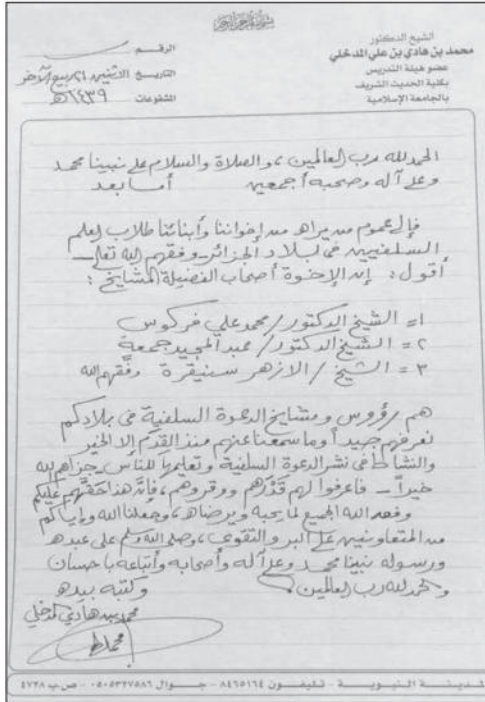 بسم الله الرحمن الرحيم
الشيخ الدكتور
محمد بن هادي بن علي المدخلي
عضو هيئة التدريس
بكلية الحديث الشريف
بالجامعة الإسلامية
الرقم
التاريخ الاثنين ربيع الآخر
المشفوعات ١٤٣٩هـ
الحمد لله رب العالمين، والصلاة والسلام على نبينا محمد
وعلى آله وصحبه أجمعين أما بعد
فإلى عموم من يراه من إخواننا وأبنائنا طلاب العلم
السلفيين في بلاد الجزائر - وفقهم الله تعالى -
أقول: إن الإخوة أصحاب الفضيلة المشايخ:
١= الشيخ الدكتور/ محمد علي فركوس
٢= الشيخ الدكتور/ عبد المجيد جمعة
٣= الشيخ/ الازهر سنيقرة وفقهم الله
هم رؤوس ومشايخ الدعوة السلفية في بلادكم
نعرفهم جيداً وما سمعنا عنهم منذ القِدَم إلا الخير
والنشاط في نشر الدعوة السلفية وتعليمها للناس - جزاهم الله
خيراً - فاعرفوا لهم قَدْرَهم ووقروهم، فإنَّ هذا حَقَّهُم عليكم
وفق الله الجميع لما يحبه ويرضاه، وجعلنا الله وإياكم
من المتعاونين على البر والتقوى، وصلى الله وسلم على عبده
ورسوله نبينا محمد وعلى آله وأصحابه وأتباعه بإحسان
والحمد لله رب العالمين. وكتبه بيده
محمد بن هادي المدخلي
المدينـة النبويـة - تليفـون ٨٤٦٥١٦٤ - جـوال ٠٥٠٥٣٢٧٥٨٦ - ص.ب ٤٧٣٨